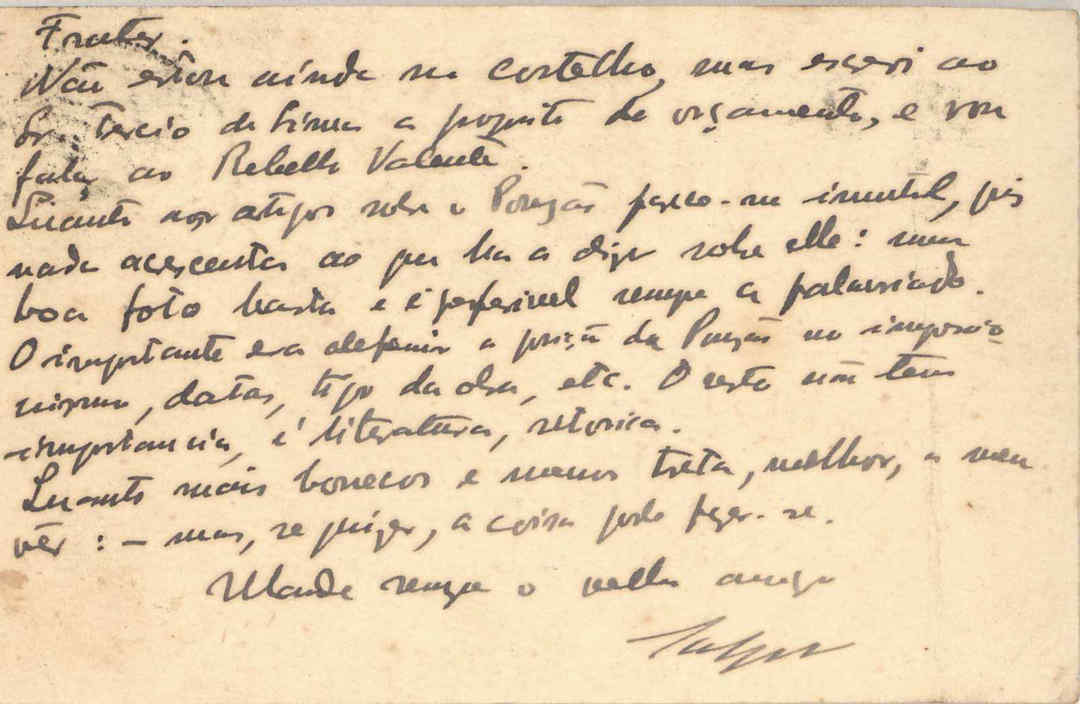 Frater.
Não estou ainda no costelho, mas escrevi ao
Sr. Tercio de a proposta do orçamento, e vou
falar ao Rebello Valente.
Quanto aos artigos sobre o Pousão parece-me inutil, pois
nada acrescenta ao que ha a dizer sobre elle: uma
boa foto basta e é preferivel sempre a palavriado.
O importante era definir a posição do Pousão no impressio
nismo, datas, tipo da obra, etc. O resto não tem
importancia, é literatura, retorica.
Quanto mais bonecos e menos treta, melhor, a meu
vêr: - mas, se quizer, a coisa pode fazer-se.
Mande sempre o velho amigo